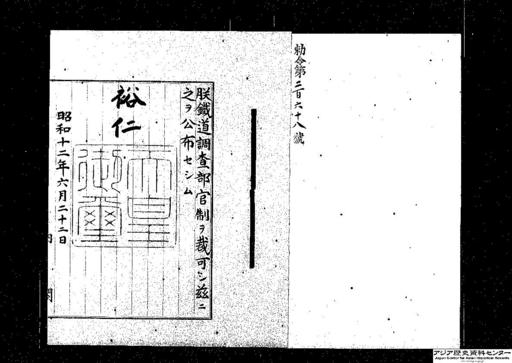 勅令第二百六十八號
朕鐵道調査部官制ヲ裁可シ茲ニ
之ヲ公布セシム
裕仁
天皇御璽
昭和十二年六月二十二日
内閣
アジア歴史資料センター
Japan Center for Asian Historical Records